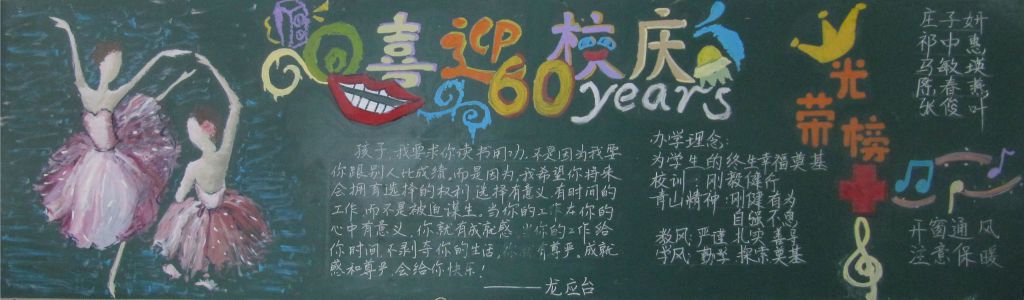 喜迎校庆
60 years
孩子,我要求你读书用功,不是因为我要
你跟别人比成绩,而是因为,我希望你将来
会拥有选择的权利,选择有意义有时间的
工作,而不是被迫谋生。当你的工作在你的
心中有意义,你就有成就感。当你的工作给
你时间,不剥夺你的生活,你就有尊严。成就
感和尊严,会给你快乐!
——龙应台
办学理念:
为学生的终生幸福奠基
校训:刚毅健行
青山精神:刚健有为
自强不息
教风:严谨 扎实 善导
学风:勤学 探索 奠基
光荣榜
庄子妍
祁中惠
马敏瑛
春燕
张俊叶
开窗通风
注意保暖